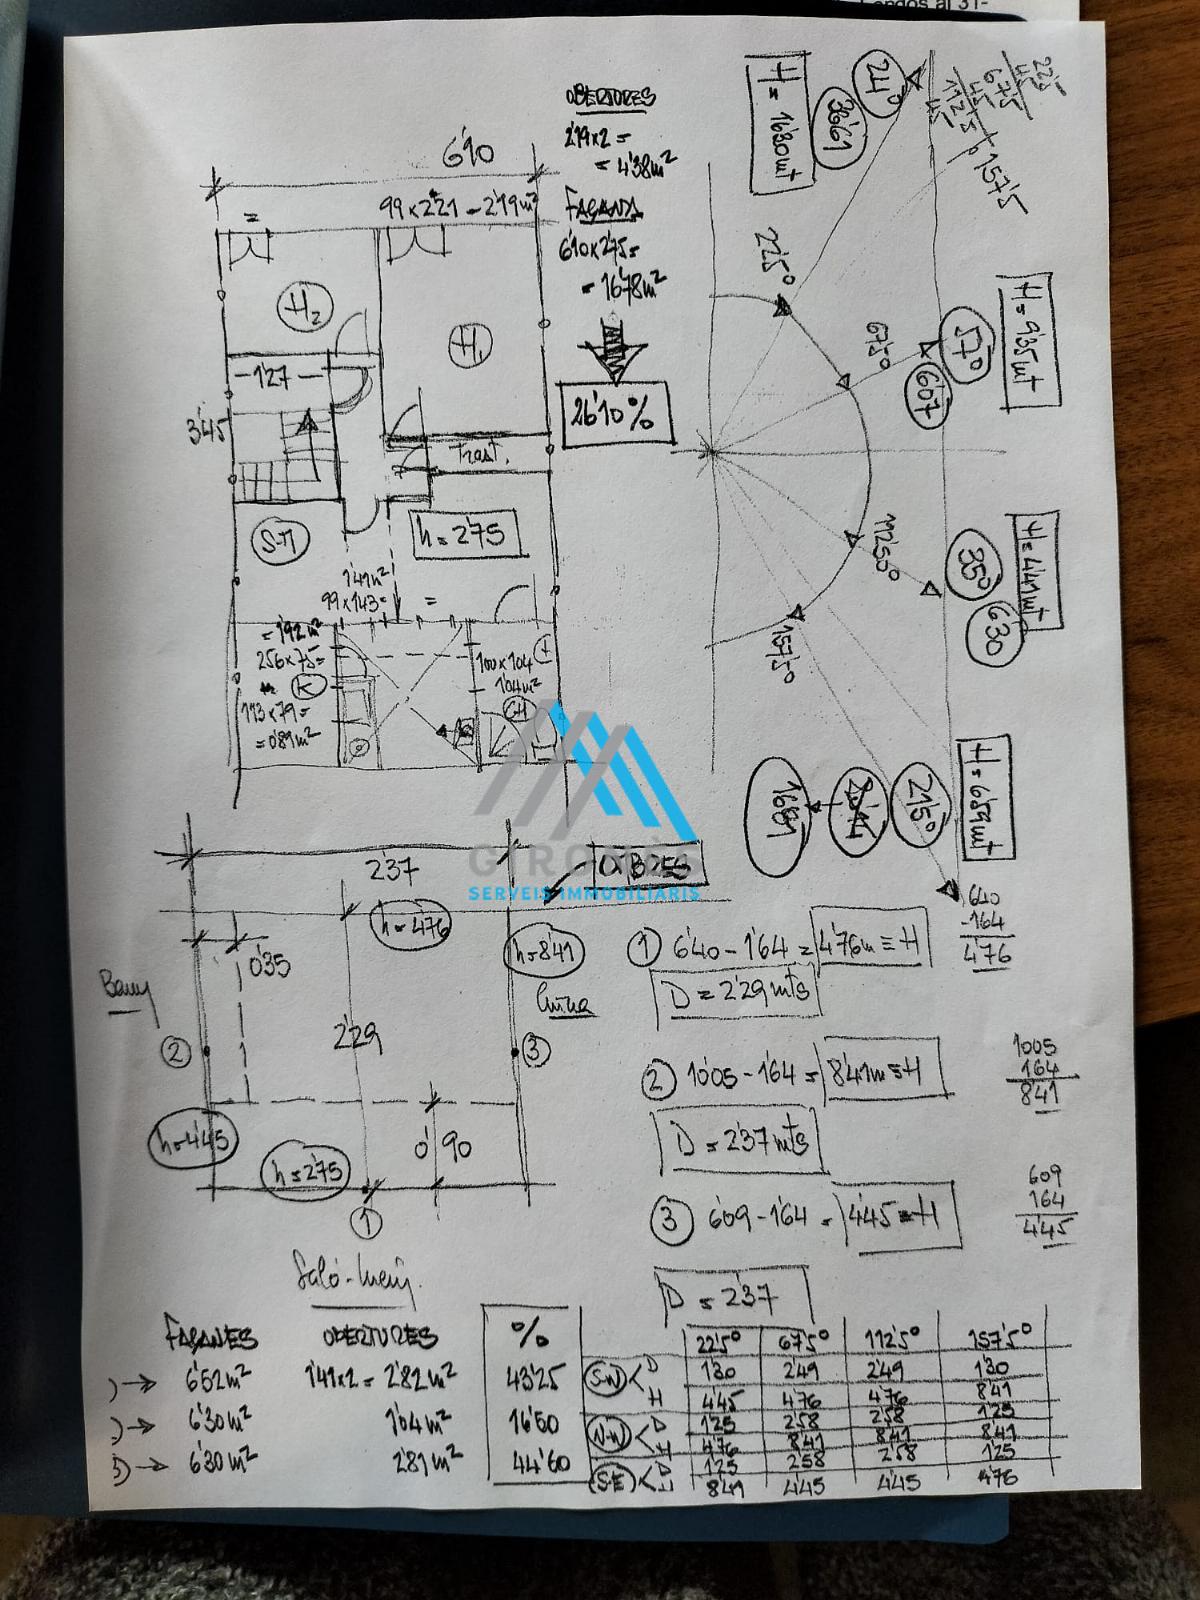 OBERTURES
2'19x2=
= 4'38m²
FAÇANA
6'10x2'75=
= 16'78m²
26'10%
6'10
99x2'21 = 2'19m²
=
H₂
H₁
1'27
3'45
Trast.
h=2'75
1'41m²
99x1'43=
=
= 1'92m²
256x75=
K
113x79=
= 0'89m²
100x104
1'04m²
CH
H= 16'30mt
24°
36'61
22'5
67'5
112'5
157'5
45
45
45
22'5°
67'5°
112'50°
157'5°
H= 9'35mt
57°
6'07
H= 4'41mt
35°
6'30
H= 6'59mt
21'5°
16'81
GIRONÈS
SERVEIS IMMOBILIARIS
2'37
h=4'76
h=8'41
0'35
2'29
Bany
Cuina
2
3
h=4'45
h=2'75
0'90
1
1 6'40-1'64 = 4'76m = H
D = 2'29mts
640
-164
4'76
2 10'05-1'64 = 8'41m = H
D = 2'37mts
1005
164
841
3 6'09-1'64 = 4'45 = H
D = 2'37
609
164
4'45
Saló-menj.
FAÇANES OBERTURES %
6'52m² 1'41x2 = 2'82m² 43'25
6'30m² 1'04m² 16'50
6'30m² 2'81m² 44'60
22'5° 67'5° 112'5° 157'5°
S-W D 1'30 2'49 2'49 1'30
H 4'45 4'76 4'76 8'41
N-W D 1'25 2'58 2'58 1'25
H 4'76 8'41 8'41 8'41
S-E D 1'25 2'58 2'58 1'25
H 8'41 4'45 4'45 4'76